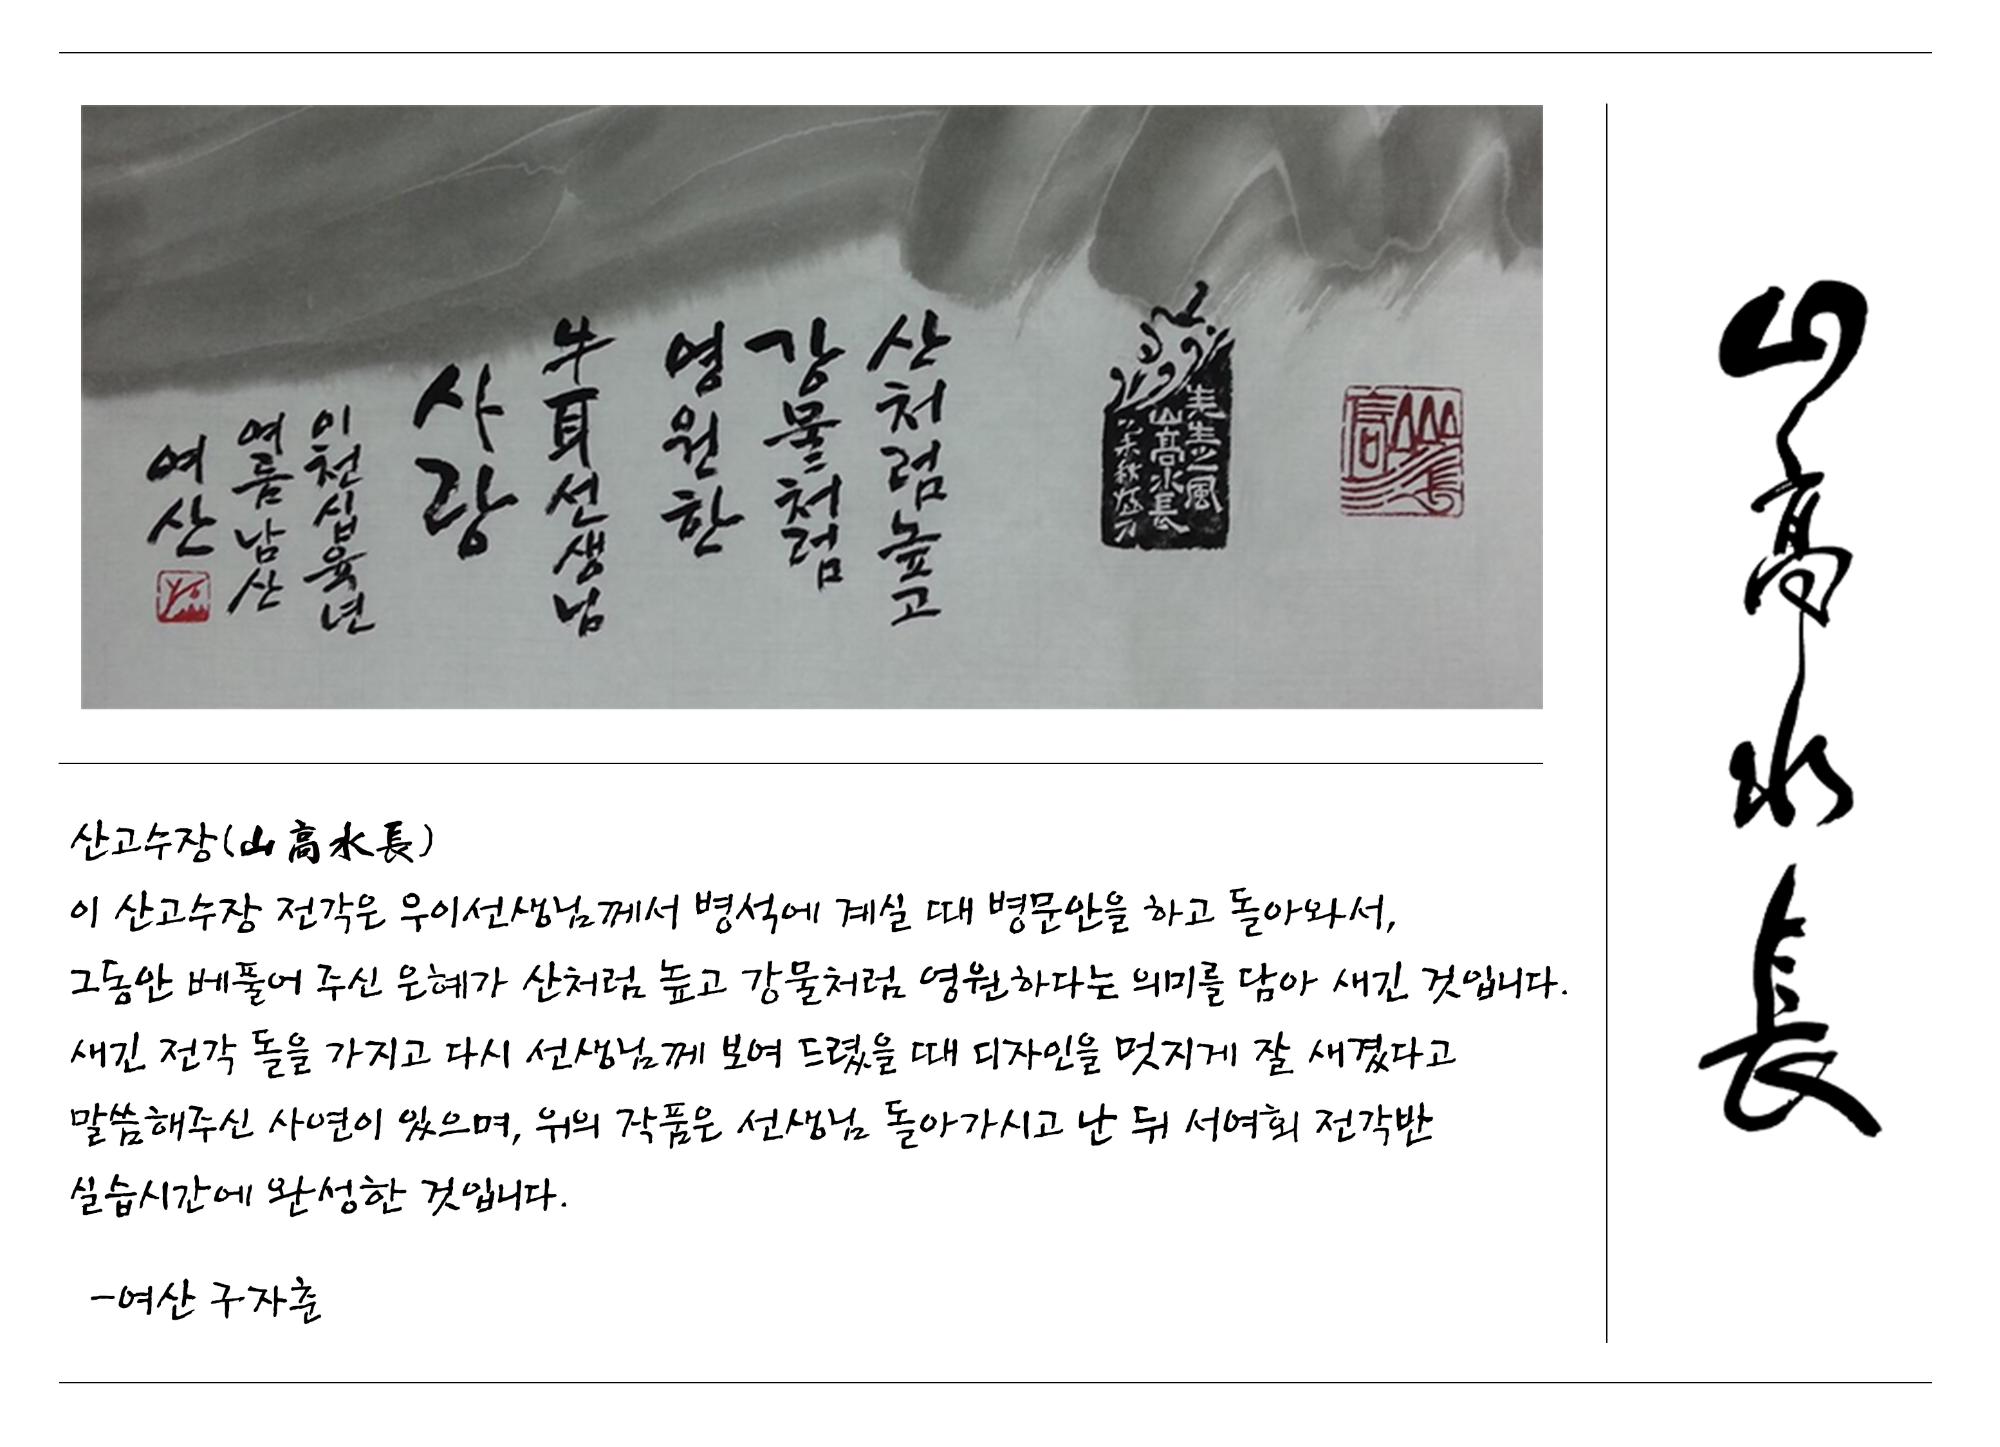 산처럼높고
강물처럼
영원한
牛耳선생님
사랑
이천십육년
여름남산
여산
先生之風
山高水長
乙未秋
山高水長
산고수장(山高水長)
이 산고수장 전각은 우이선생님께서 병석에 계실 때 병문안을 하고 돌아와서,
그동안 베풀어 주신 은혜가 산처럼 높고 강물처럼 영원하다는 의미를 담아 새긴 것입니다.
새긴 전각 돌을 가지고 다시 선생님께 보여 드렸을 때 디자인을 멋지게 잘 새겼다고
말씀해주신 사연이 있으며, 위의 작품은 선생님 돌아가시고 난 뒤 서여회 전각반
실습시간에 완성한 것입니다.
-여산 구자춘
山高水長